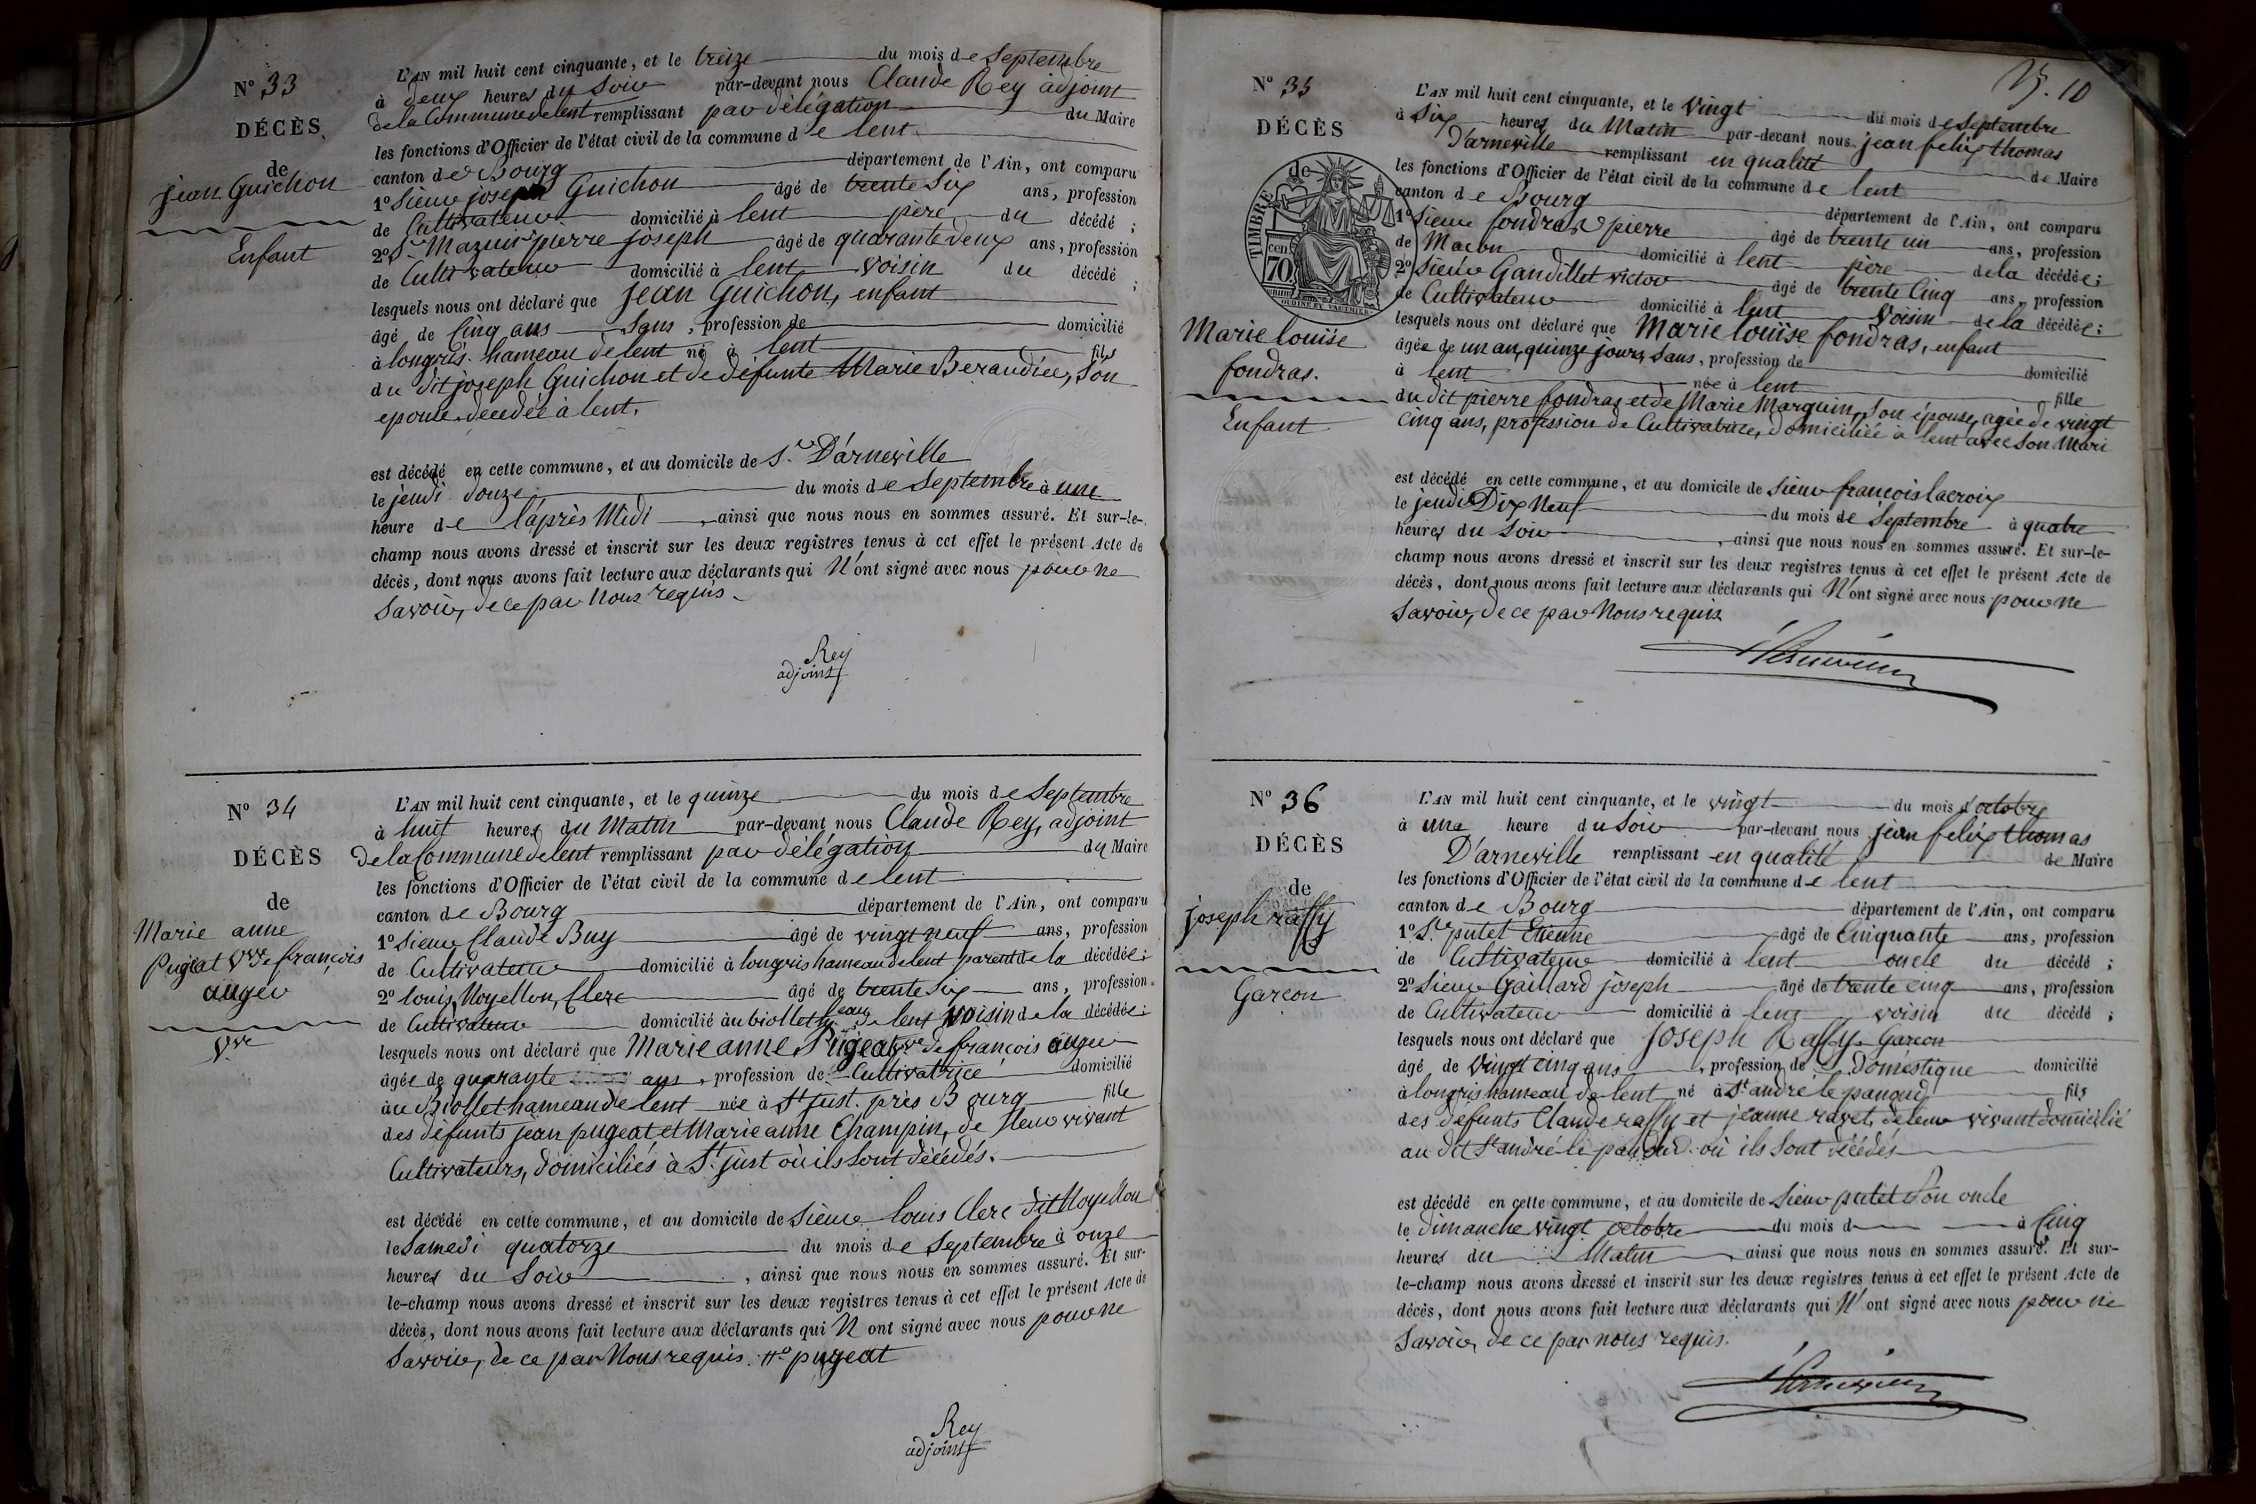 N° 33
DÉCÈS
de
jean Guichon
Enfant
L'AN mil huit cent cinquante, et le treize du mois de Septembre
à deux heures du Soir par-devant nous Claude Rey adjoint
de la Commune de lent remplissant par délégation du Maire
les fonctions d'Officier de l'état civil de la commune de lent
canton de Bourg département de l'Ain, ont comparu
1° Sieur joseph Guichon âgé de trente Six ans, profession
de Cultivateur domicilié à lent père du décédé ;
2° Sr Mazuir pierre joseph âgé de quarante deux ans, profession
de Cultivateur domicilié à lent voisin du décédé ;
lesquels nous ont déclaré que jean Guichon, enfant
âgé de Cinq ans Sans, profession de domicilié
à longris hameau de lent né à lent fils
du dit joseph Guichon et de défunte Marie Beraudier, Son
epouse decedée à lent.
est décédé en cette commune, et au domicile de Sr D'arneville
le jeudi douze du mois de Septembre à une
heure de l'après Midi, ainsi que nous nous en sommes assuré. Et sur-le-
champ nous avons dressé et inscrit sur les deux registres tenus à cet effet le présent Acte de
décès, dont nous avons fait lecture aux déclarants qui N'ont signé avec nous pour ne
Savoir, de ce par Nous requis.
Rey
adjoint
N° 34
DÉCÈS
de
Marie anne
Pugeat Vve de françois
auger
Vve
L'AN mil huit cent cinquante, et le quinze du mois de Septembre
à huit heures du Matin par-devant nous Claude Rey, adjoint
De la Commune de lent remplissant par délégation du Maire
les fonctions d'Officier de l'état civil de la commune de lent
canton de Bourg département de l'Ain, ont comparu
1° Sieur Claude Buy âgé de vingt neuf ans, profession
de Cultivateur domicilié à longris hameau de lent parent de la décédée ;
2° louis Noyellon, Clerc âgé de trente Six ans, profession
de Cultivateur domicilié au biollet heau de lent voisin de la décédée ;
lesquels nous ont déclaré que Marie anne Pugeat Vve de françois auger
âgée de quarante ans, profession de Cultivatrice domicilié
au Biollet hameau de lent née à St just près Bourg fille
des défunts jean pugeat et Marie anne Champin, de leur vivant
Cultivateurs, domiciliés à St just où ils Sont décédés.
est décédé en cette commune, et au domicile de Sieur louis Clerc dit Noyellon
le Samedi quatorze du mois de Septembre à onze
heures du Soir, ainsi que nous nous en sommes assuré. Et sur-
le-champ nous avons dressé et inscrit sur les deux registres tenus à cet effet le présent Acte de
décès, dont nous avons fait lecture aux déclarants qui N'ont signé avec nous pour ne
Savoir, de ce par Nous requis. pugeat
Rey
adjoint
10
N° 35
DÉCÈS
de
TIMBRE
70
cen
OUDINÉ ET VAUTHIER
Marie louise
fondras.
Enfant
L'AN mil huit cent cinquante, et le Vingt du mois de Septembre
à Six heures du Matin par-devant nous jean felix thomas
D'arneville remplissant en qualité de Maire
les fonctions d'Officier de l'état civil de la commune de lent
canton de Bourg département de l'Ain, ont comparu
1° Sieur fondras pierre âgé de trente un ans, profession
de Macon domicilié à lent père de la décédée ;
2° Sieur Gandillet victor âgé de trente Cinq ans, profession
de Cultivateur domicilié à lent Voisin de la décédée ;
lesquels nous ont déclaré que Marie louise fondras, enfant
âgée de un an, quinze jours, Sans, profession de domicilié
à lent née à lent fille
du dit pierre fondras et de Marie Marguin, Son épouse, agée de vingt
Cinq ans, profession de Cultivatrice, domiciliée à lent avec Son Mari
est décédé en cette commune, et au domicile de Sieur françois lacroix
le jeudi Dix Neuf du mois de Septembre à quatre
heures du Soir, ainsi que nous nous en sommes assuré. Et sur-le-
champ nous avons dressé et inscrit sur les deux registres tenus à cet effet le présent Acte de
décès, dont nous avons fait lecture aux déclarants qui N'ont signé avec nous pour ne
Savoir, de ce par Nous requis
N° 36
DÉCÈS
de
joseph raffy
Garcon
L'AN mil huit cent cinquante, et le vingt du mois d'octobre
à une heure du Soir par-devant nous jean felix thomas
D'arneville remplissant en qualité de Maire
les fonctions d'Officier de l'état civil de la commune de lent
canton de Bourg département de l'Ain, ont comparu
1° Sr putet Etienne âgé de Cinquante ans, profession
de Cultivateur domicilié à lent oncle du décédé ;
2° Sieur Gaillard joseph âgé de trente cinq ans, profession
de Cultivateur domicilié à lent voisin du décédé ;
lesquels nous ont déclaré que Joseph Raffy Garcon
âgé de vingt cinq ans, profession de Domestique domicilié
à longris hameau de lent né à St andré le panoud fils
des défunts Claude raffy et jeanne ravet, de leur vivant domicilié
au dit St andré le panoud où ils Sont décédés
est décédé en cette commune, et au domicile de Sieur putet Son oncle
le dimanche vingt octobre du mois d à Cinq
heures du Matin, ainsi que nous nous en sommes assuré. Et sur-
le-champ nous avons dressé et inscrit sur les deux registres tenus à cet effet le présent Acte de
décès, dont nous avons fait lecture aux déclarants qui N'ont signé avec nous pour ne
Savoir, de ce par nous requis.